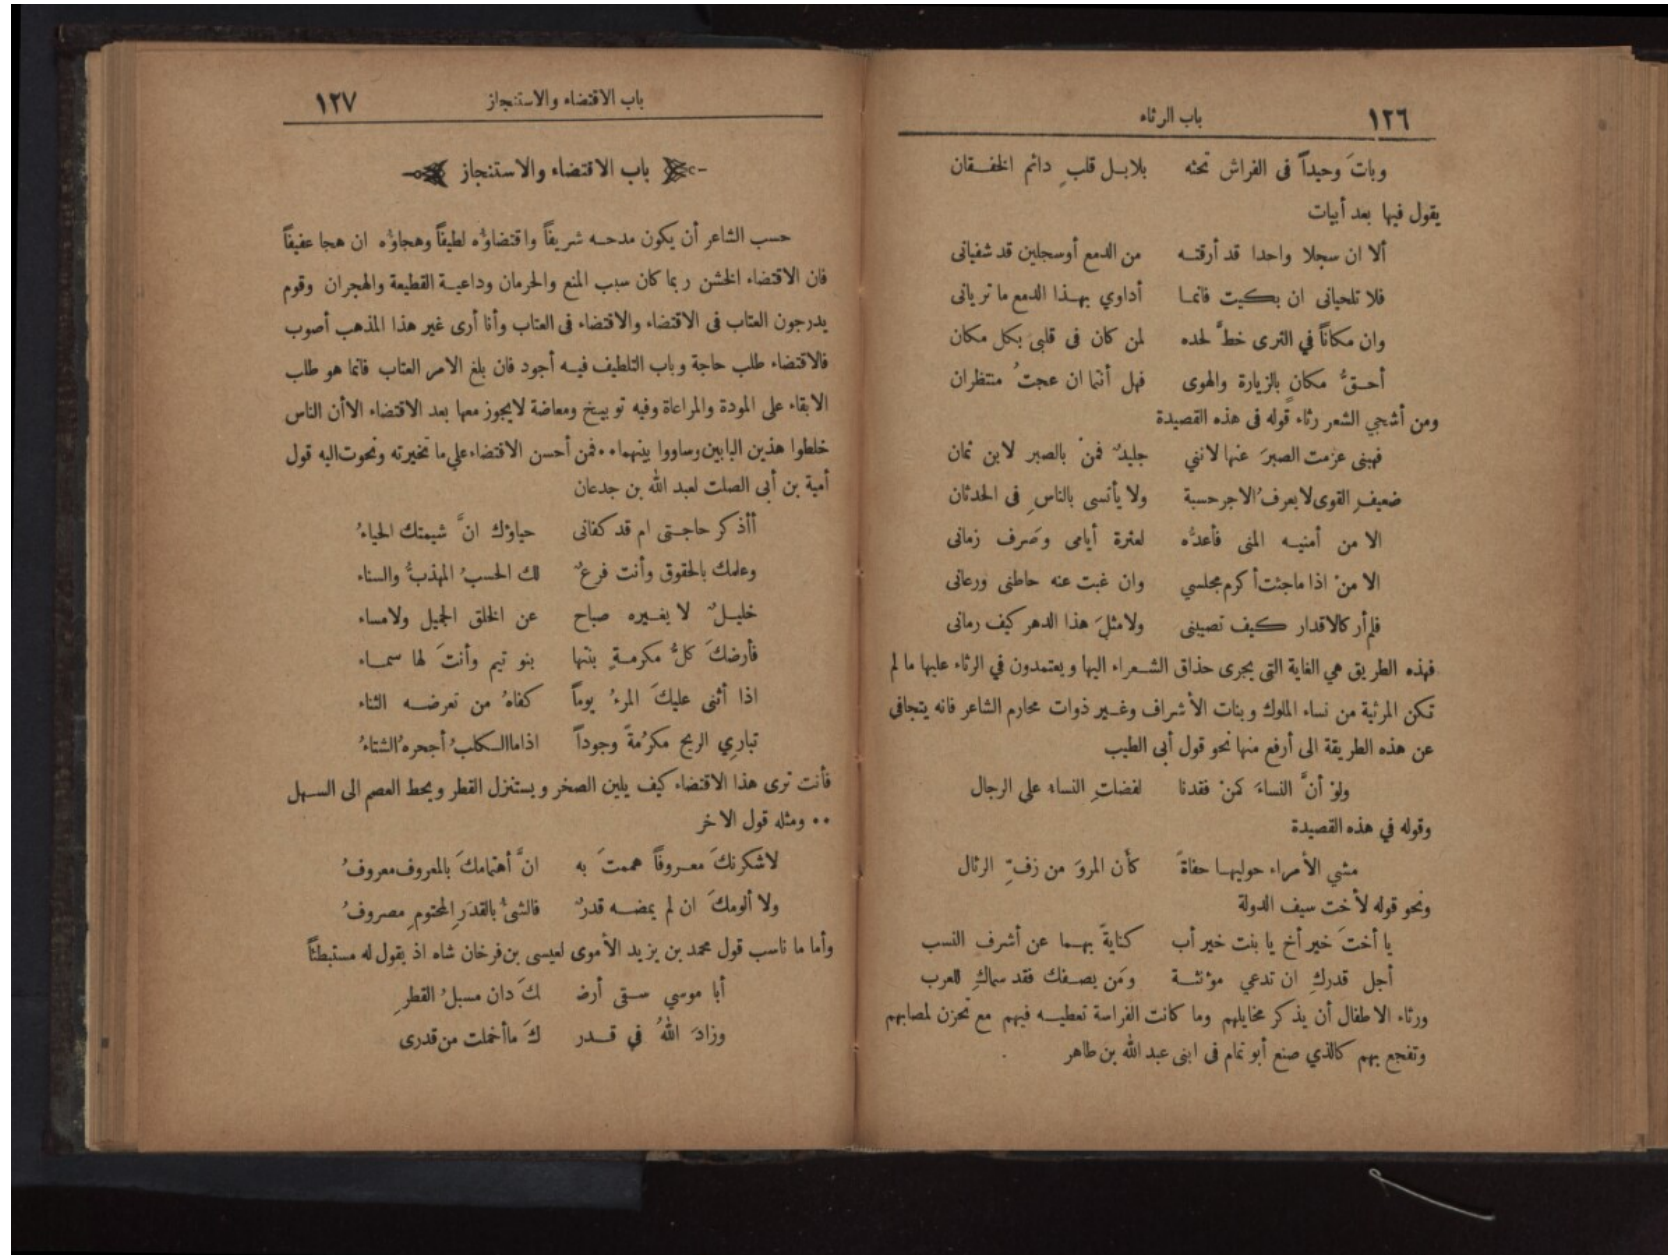 ١٢٦
باب الرثاء
وباتَ وحيداً فى الفراش تحثه بلابـل قلبٍ دائم الخفـقان
يقول فيها بعد أبيات
ألا ان سجلا واحدا قد أرقتـه من الدمع أوسجلين قد شفيانى
فلا تلحيانى ان بكيت فانمـا أداوي بهـذا الدمع ما تريانى
وان مكاناً في الثرى خطَّ لحده لمن كان فى قلبى بكل مكان
أحـقُّ مكانٍ بالزيارة والهوى فهل أنتما ان عجتُ منتظران
ومن أشجي الشعر رثاء قوله فى هذه القصيدة
فهبنى عزمت الصبرَ عنها لاننى جليدٌ فمنْ بالصبر لابن ثمان
ضعيفِ القوى لا يعرفُ الاجر حسبة ولا يأتسى بالناسِ فى الحدثان
الا من أمنيـه المنى فأعدُّه لعثرة أيامى وصَرف زمانى
الا منْ اذا ماجئت أكرم مجلسي وان غبت عنه حاطنى ورعانى
فلم أر كالاقدار كيف تصيبنى ولا مثلَ هذا الدهر كيف رمانى
فهذه الطريق هي الغاية التى يجرى حذاق الشـعراء اليها ويعتمدون في الرثاء عليها ما لم
تكن المرثية من نساء الملوك وبنات الأشراف وغـير ذوات محارم الشاعر فانه يتجافى
عن هذه الطريقة الى أرفع منها نحو قول أبى الطيب
ولوْ أنَّ النساءَ كمنْ فقدنا لفضلتِ النساء على الرجال
وقوله في هذه القصيدة
مشي الأمراء حوليهـا حفاةً كأن المروَ من زفّ الرئال
ونحو قوله لأخت سيف الدولة
يا أختَ خير أخ يا بنت خير أب كنايةً بهـما عن أشرف النسب
أجل قدركِ ان تدعي مؤنثـة ومَن يصـفك فقد سماكِ للعرب
ورثاء الاطفال أن يذكر مخايلهم وما كانت الفراسة تعطيـه فيهم مع تحزن لمصابهم
وتفجع بهم كالذي صنع أبو تمام فى ابنى عبد الله بن طاهر
باب الاقتضاء والاستنجاز
١٢٧
باب الاقتضاء والاستنجاز
حسب الشاعر أن يكون مدحـه شريفاً واقتضاؤُه لطيفاً وهجاؤُه ان هجا عفيفاً
فان الاقتضاء الخشن ربما كان سبب المنع والحرمان وداعيـة القطيعة والهجران وقوم
يدرجون العتاب فى الاقتضاء والاقتضاء فى العتاب وأنا أرى غير هذا المذهب أصوب
فالاقتضاء طلب حاجة وباب التلطيف فيـه أجود فان بلغ الامر العتاب فانما هو طلب
الابقاء على المودة والمراعاة وفيه توبيخ ومعاضة لايجوز معها بعد الاقتضاء الاأن الناس
خلطوا هذين البابين وساووا بينهما٠٠فمن أحسن الاقتضاء علي ما تخيرته ونحوت اليه قول
أمية بن أبى الصلت لعبد الله بن جدعان
أأذكر حاجـتى ام قد كفانى حياؤك انَّ شيمتك الحياءُ
وعلمك بالحقوق وأنت فرعٌ لك الحسبُ المهذبُ والسناء
خليـلٌ لا يغـيره صباح عن الخلق الجميل ولامساء
فأرضكَ كلُّ مكرمـةٍ بنتها بنو تيم وأنتَ لها سمـاء
اذا أثنى عليكَ المرءُ يوماً كفاهُ من تعرضـه الثناء
تبارِي الريح مكرُمةً وجوداً اذاماالـكلبُ أجحرهُ الشتاءُ
فأنت ترى هذا الاقتضاء كيف يلين الصخر ويستنزل القطر ويحط العصم الى السـهل
٠٠ ومثله قول الاخر
لاشكرنكَ معـروفاً هممتَ به انَّ أهتمامكَ بالمعروف معروفُ
ولا ألومكَ ان لم يمضـه قدرٌ فالشئُ بالقدَرِ المحتومِ مصروفُ
وأما ما ناسب قول محمد بن يزيد الأموى لعيسى بن فرخان شاه اذ يقول له مستبطئاً
أبا موسي سـقى أرضـ ـكَ دان مسبلُ القطرِ
وزادَ اللهُ في قـدر كَ ماأخملت من قدرى